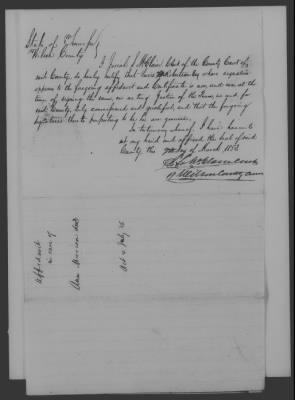 State of Tennessee
Wilson County
I Josiah S McClain Clerk of the County Court of
said County, do hereby certify that Lewis whose signature
appears to the foregoing affidavit and Certificate is now, and was at the
time of signing the same, an acting Justice of the Peace, in and for
said County, duly commissioned and qualified, and that the foregoing
signatures thereto purporting to be his are genuine.
In testimony whereof I have hereunto
set my hand and affixed the seal of said
County this day of March 185
J S McClain Clerk
Affidavit
in case of
Ann
Act 4 July 36